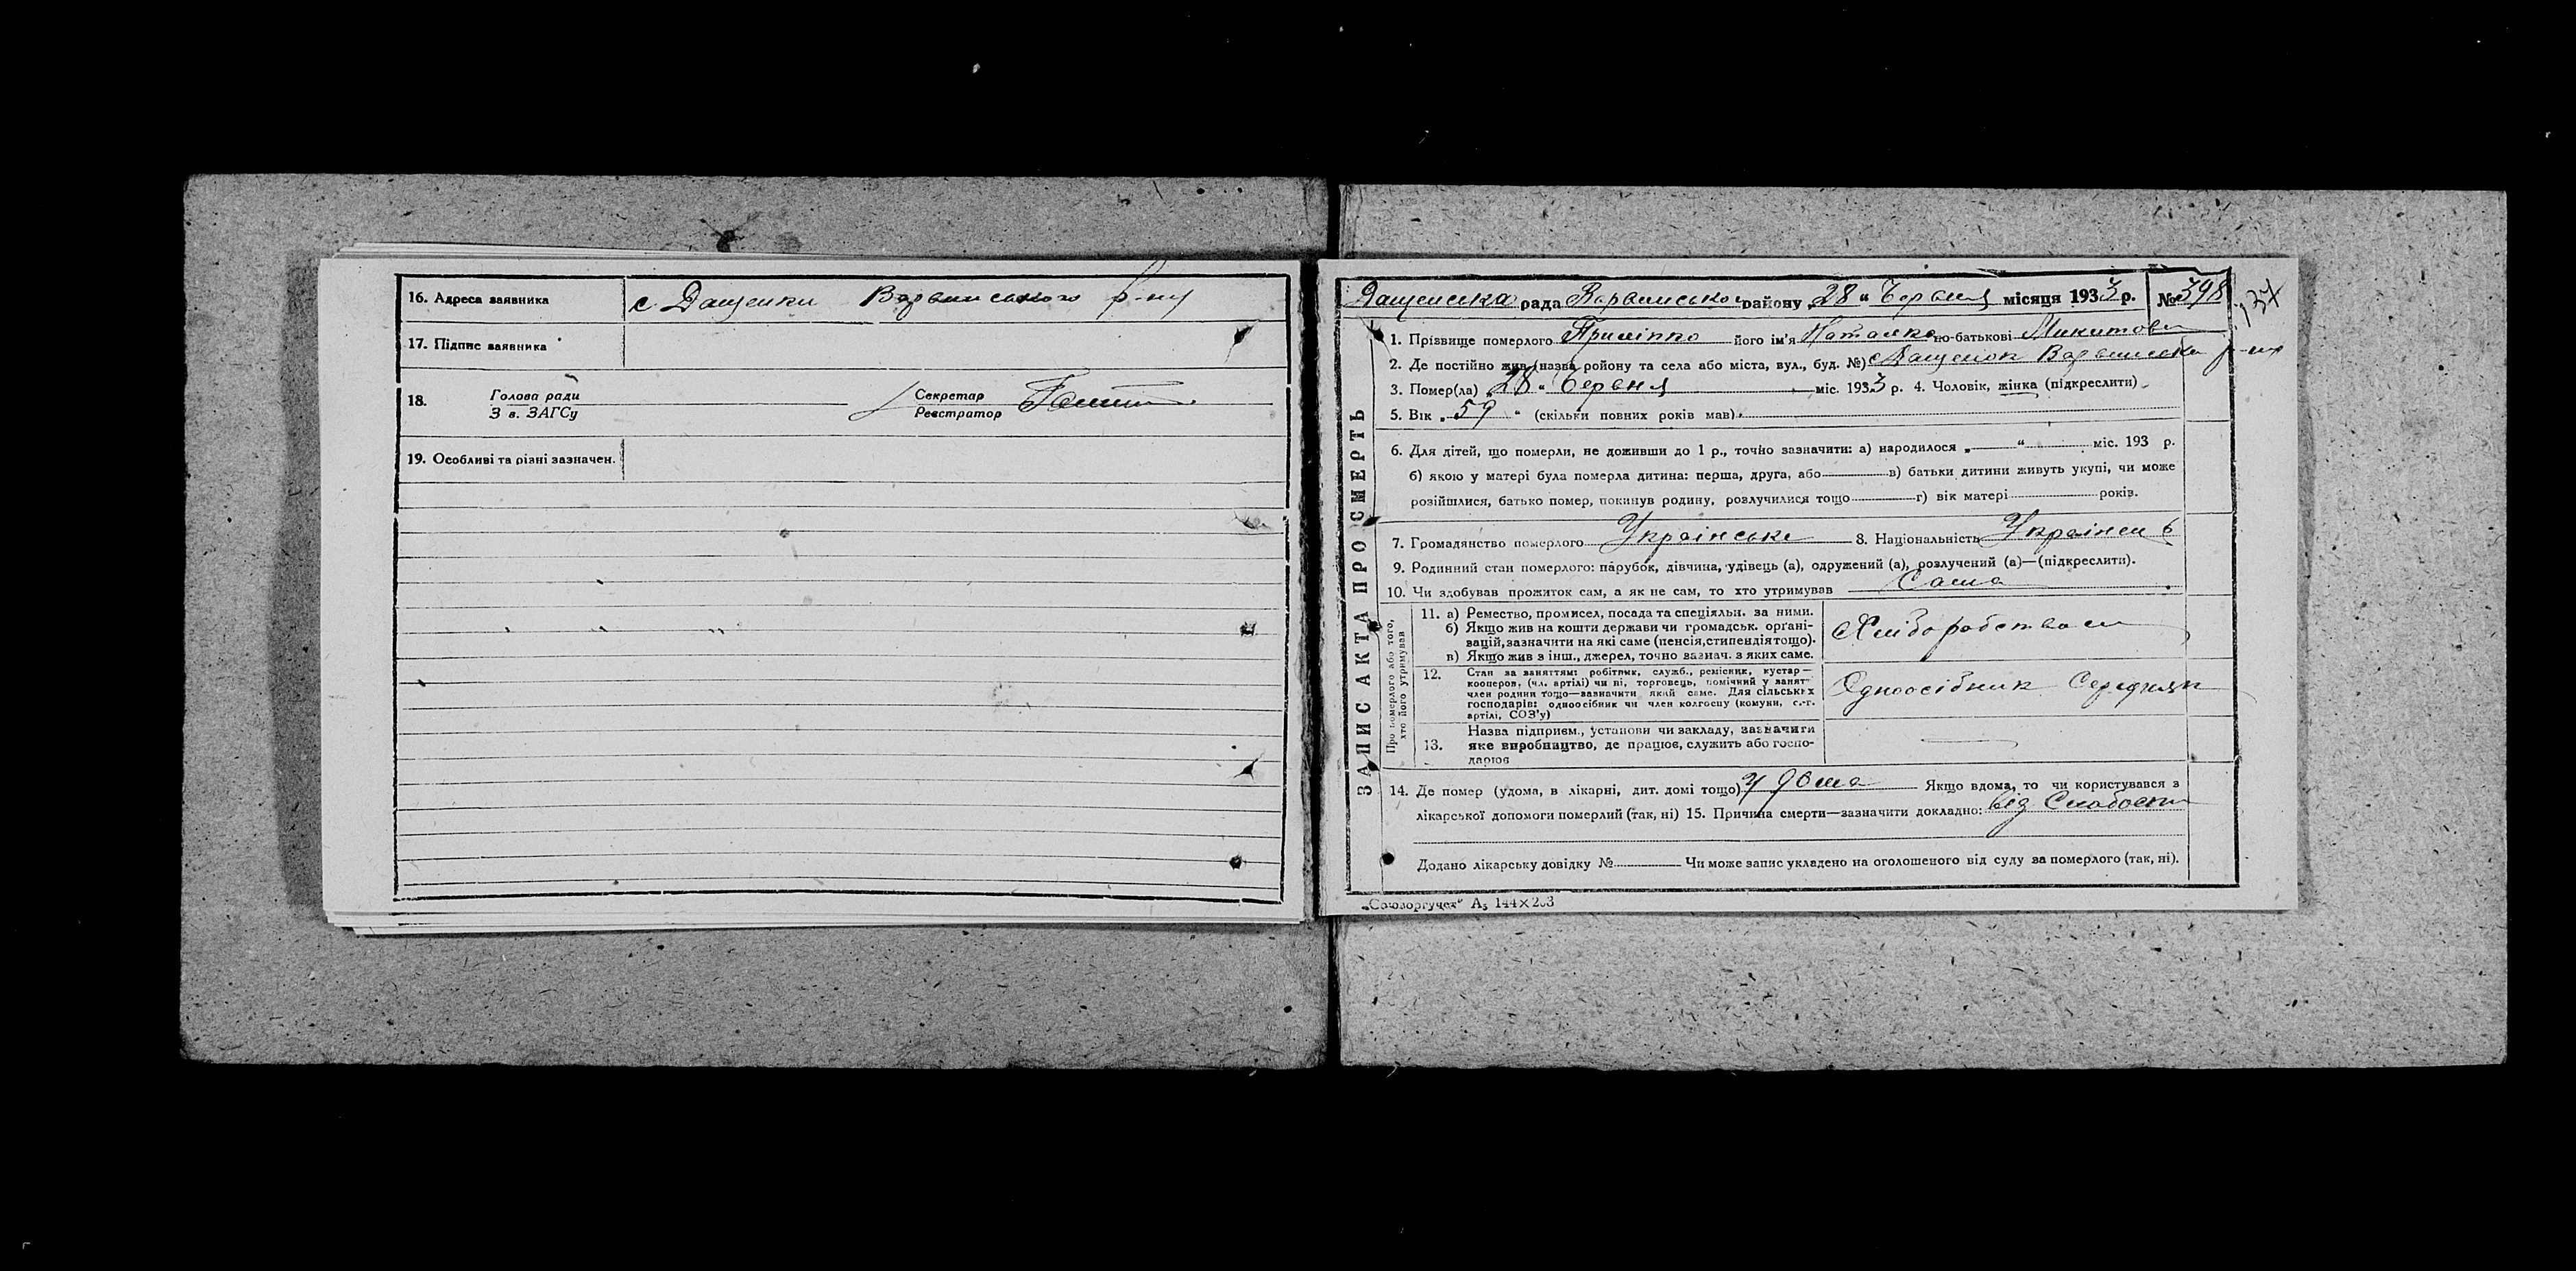 16. Адреса заявника с Дащенки Варвинського р-ну
17. Підпис заявника
18. Голова ради Секретар
З в. ЗАГСу Реєстратор
19. Особливі та різні зазначен.
Дащенська рада Варвинського району „28“ Червня місяця 1933 р. № 398
137
ЗАПИС АКТА ПРО СМЕРТЬ
1. Прізвище померлого Приліпко його ім'я Наталка по-батькові Микитовн
2. Де постійно жив (назва ройону та села або міста, вул., буд. №) с Дащенок Варвинська р-ну
3. Помер(ла) „28“ Червня міс. 1933 р. 4. Чоловік, жінка (підкреслити)
5. Вік „59“ (скільки повних років мав)
6. Для дітей, що померли, не доживши до 1 р., точно зазначити: а) народилося „ “ міс. 193 р.
б) якою у матері була померла дитина: перша, друга, або в) батьки дитини живуть укупі, чи може
розійшлися, батько помер, покинув родину, розлучилися тощо г) вік матері років.
7. Громадянство померлого Українське 8. Національність Українец
9. Родинний стан померлого: парубок, дівчина, удівець (а), одружений (а), розлучений (а)—(підкреслити).
10. Чи здобував прожиток сам, а як не сам, то хто утримував Сама
Про померлого або того,
хто його утримував
11. а) Ремество, промисел, посада та спеціяльн. за ними.
б) Якщо жив на кошти держави чи громадськ. орґані-
вацій, зазначити на які саме (пенсія, стипендія тощо).
в) Якщо жив з інш., джерел, точно зазнач. з яких саме.
Хліборобством
12. Стан за заняттям: робітник, служб., ремісник, кустар—
кооперов. (чл. артілі) чи ні, торговець, помічний у занят
член родини тощо—зазначити який саме. Для сільських
господарів: одноосібник чи член колгоспу (комуни, с.-г.
артілі, СОЗ'у)
Одноосібник Середняк
13. Назва підприєм., установи чи закладу, зазначити
яке виробництво, де працює, служить або госпо-
дарює
14. Де помер (удома, в лікарні, дит. домі тощо) у дома Якщо вдома, то чи користувався з
лікарської допомоги померлий (так, ні) 15. Причина смерти—зазначити докладно: від Слабости
Додано лікарську довідку № Чи може запис укладено на оголошеного від суду за померлого (так, ні).
„Союзоргучет“ А₅ 144×203